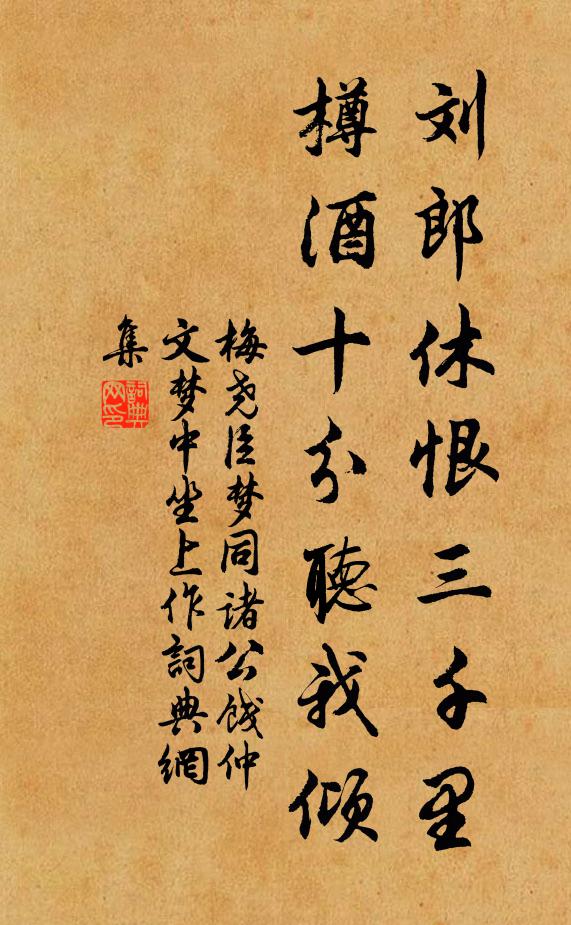 刘郎休恨三千里
樽酒十分聽我倾
梅尧臣梦同诸公饯仲
文梦中坐上作詞典網
集
詞典網印